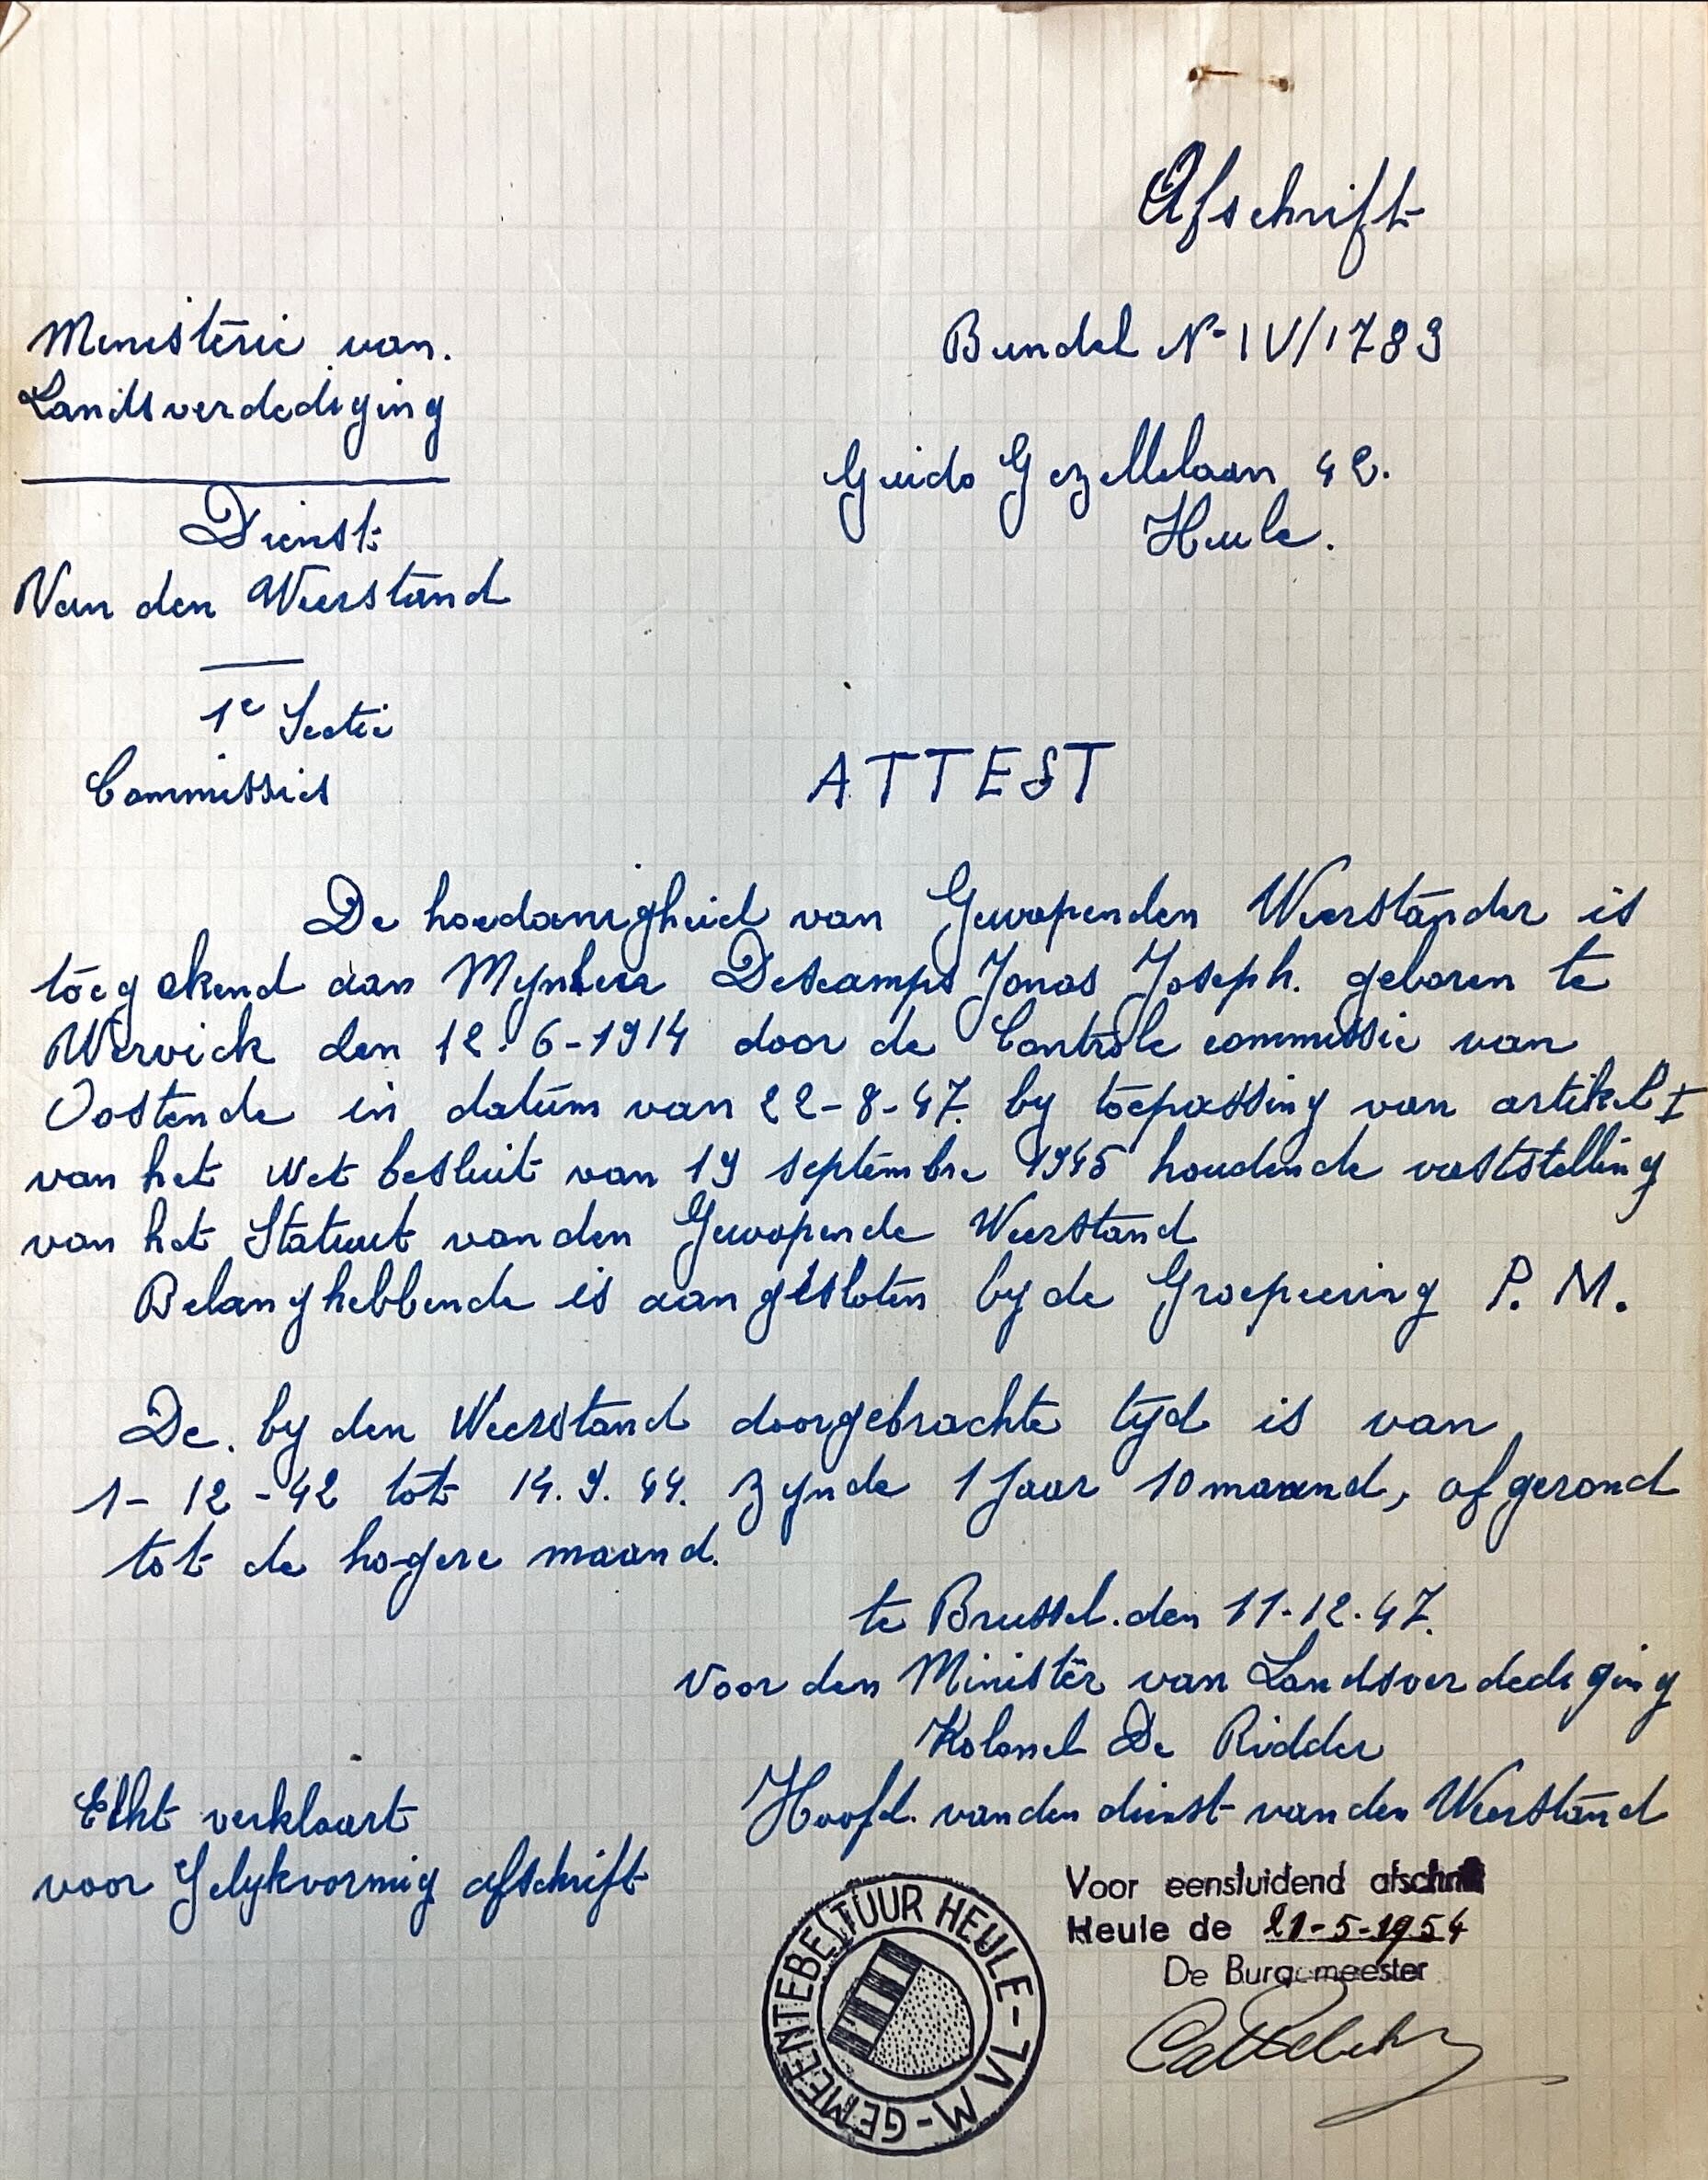 Afschrift
Ministerie van.
Landsverdediging
Bundel N° IV/1789
Guido Gezellelaan 42.
Heule.
Dienst
Van den Weerstand
1e Sectie
Commissies
ATTEST
De hoedanigheid van Gewapenden Weerstander is
toegekend aan Mynheer Descamps Jonas Joseph. geboren te
Wervick den 12.6-1914 door de Controle commissie van
Oostende in datum van 22-8-47. by toepassing van artikel I
van het wet besluit van 19 septembre 1945 houdende vaststelling
van het Statuut van den Gewapende Weerstand
Belanghebbende is aangesloten by de Groepeering P. M.
De. by den Weerstand doorgebrachte tyd is van
1-12-42 tot 14.9.44. zynde 1 Jaar 10 maand, afgerond
tot de hogere maand.
te Brussel. den 11-12.47.
Voor den Minister van Landsverdediging
Kolonel De Ridder
Hoofd. van den dienst van den Weerstand
Echt verklaart
voor Gelykvormig afschrift
GEMEENTEBESTUUR HEULE - W VL -
Voor eensluidend afschrift
Heule de 21-5-1954
De Burgemeester